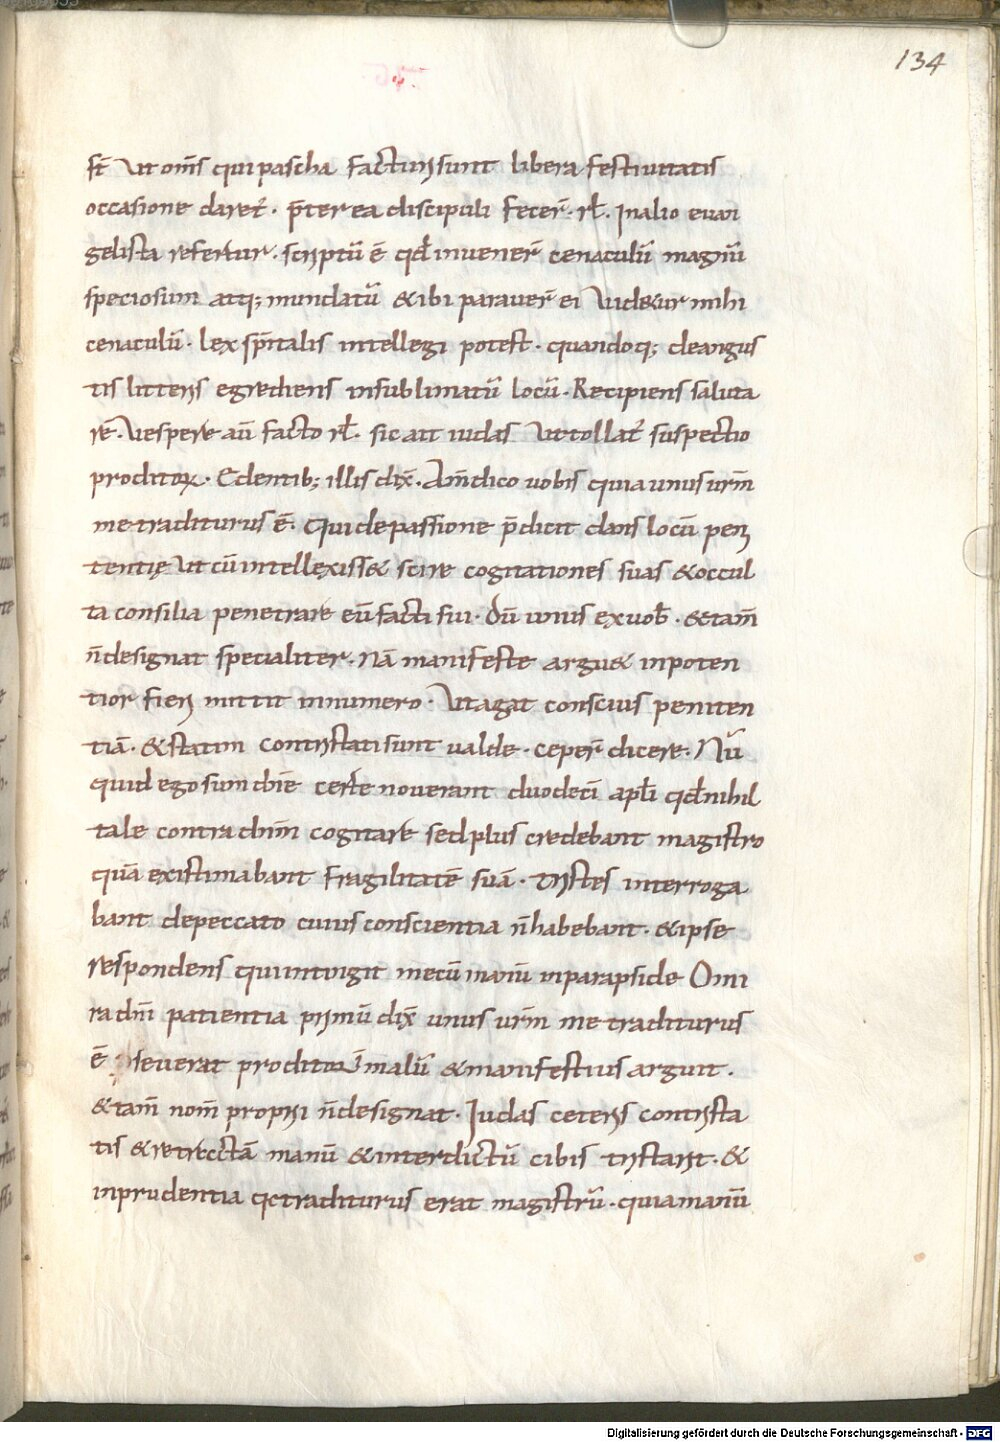 134
st̄ Ut om̄s qui pascha facturi sunt libera festiuitatis
occasione daret᷑. p̄terea discipuli fecer̄. rl̄. In alio euan
gelista refertur. scriptū ē qd̄ inuener̄ cenaculū magnū
speciosum atq; mundatū & ibi parauer̄ ei Uidetur mihi
cenaculū. lex sp̄italis intellegi potest. quandoq; de angus
tis litteris egrediens in sublimatū locū. Recipiens saluta
rē. Uespere aū facto rl̄. sic ait iudas Ut tollat᷑ suspectio
proditor. Edentib; illis dix̄. Am̄ dico uobis quia unus urm̄
me traditurus ē. Qui de passione p̄dicit dans locū peni
tentię Ut cū intellexiss& scire cogitationes suas & occul
ta consilia penetrare eū facti sui. Dū unus ex uob̄. & tam̄
n̄ designat specialiter. Nā manifeste argu& inpoten
tior fieri mittit in numero. Ut agat conscius peniten
tiā. & statim contristati sunt ualde. ceper̄ dicere. Nū
quid ego sum dn̄e certe nouerant duodecī apl̄i qd̄ nihil
tale contra dnm̄ cogitare sed plus credebant magistro
quā existimabant fragilitatē suā. tristes interroga
bant de peccato cuius conscientia n̄ habebant. & ipse
respondens qui intingit mecū manū in parapside Omi
ra dn̄i patientia primū dix̄ unus urm̄ me traditurus
ē p̄seuerat proditor ī malū & manifestius arguit.
& tam̄ nom̄ proprii n̄ designat. Iudas ceteris contrista
tis & retrectā manū & interdictū cibis tristarit. &
inprudentia q& traditurus erat magistrū. quia manū
Digitalisierung gefördert durch die Deutsche Forschungsgemeinschaft - DFG